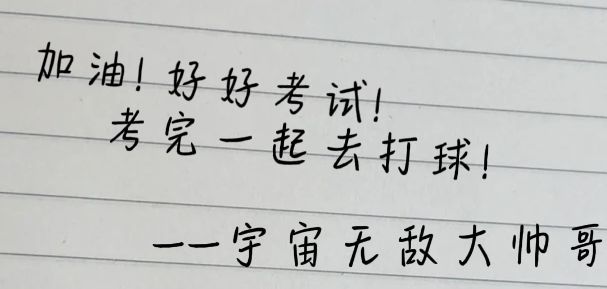 加油！好好考试！
考完一起去打球！
——宇宙无敌大帅哥